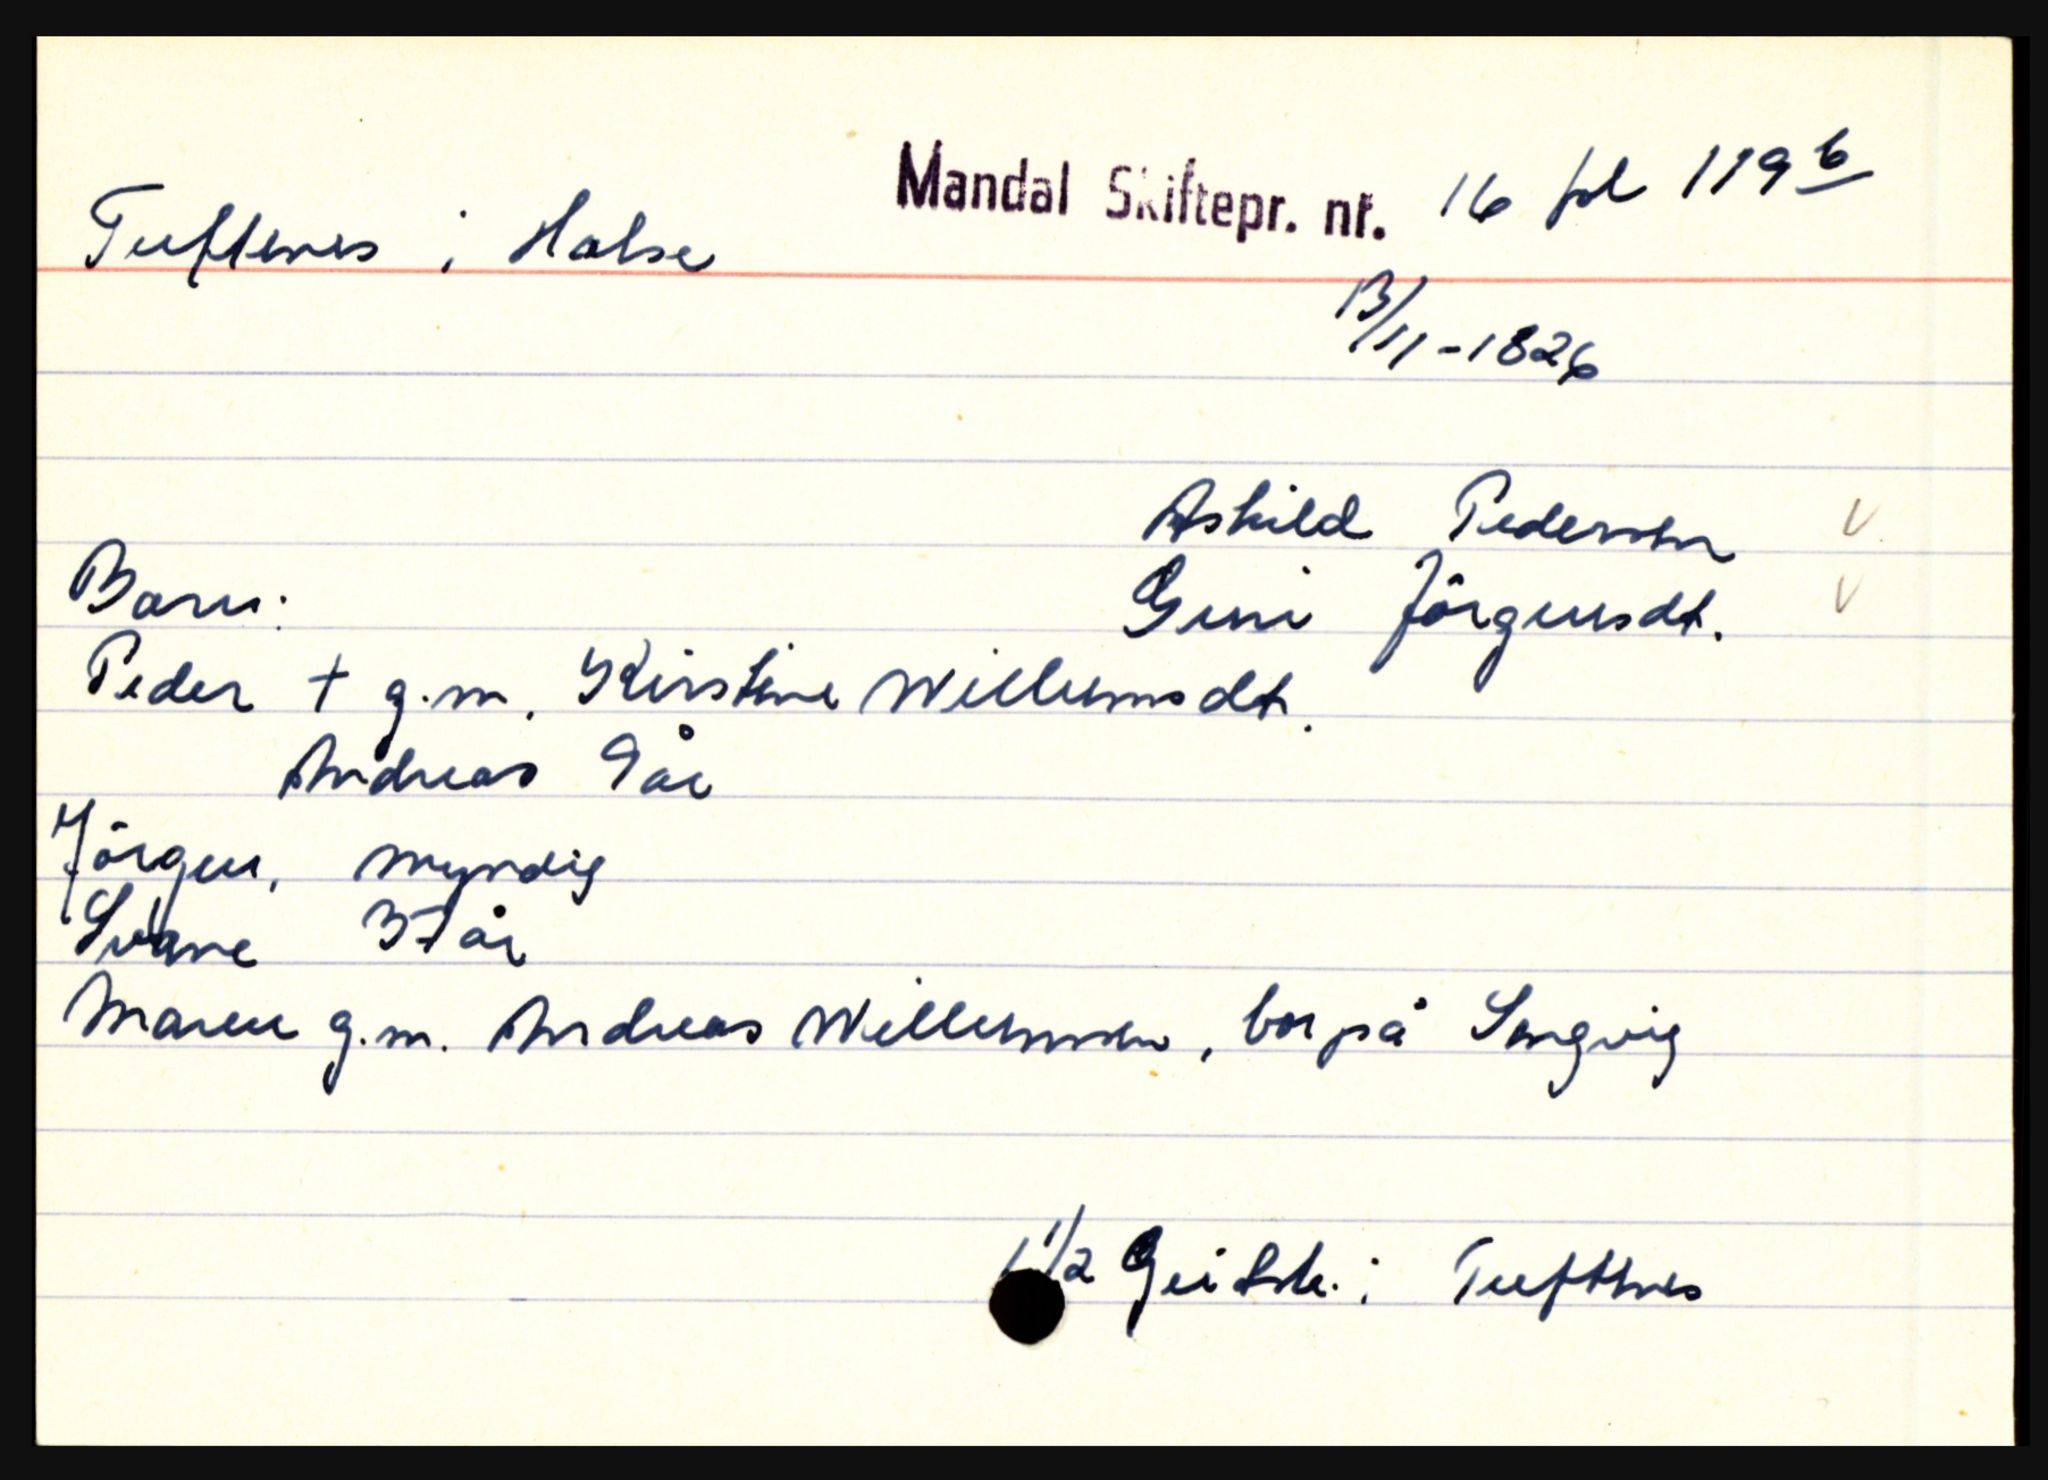 Mandal Skiftepr. nr. 16 fol 119 b
Tuftenes i Halse
13/11-1826
Askild Pedersen V
Barn:
Guni Jörgensdt. V
Peder + g.m. Kirstine Willumsdt.
Andreas 9 år
Jörgen, myndig
Svane 37 år
Maren g.m. Andreas Willumsen, bor på Songvig
1 1/2 i Tuftenes